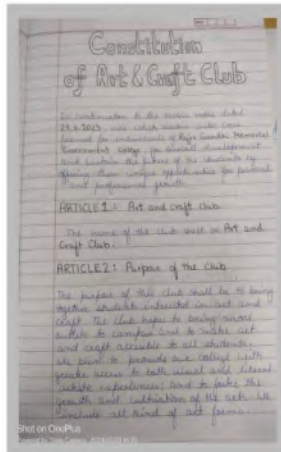 Constitution
of Art & Craft Club
In continuation to the notice dated
29.8.2023, new
formed for
Government College for overall development
and the future of the students by
offering them unique opportunities for personal
and professional growth.
ARTICLE 1: Art and Craft Club
The name of the club shall be Art and
Craft Club.
ARTICLE 2: Purpose of the Club
The purpose of this club shall be to bring
together students interested in art and
craft. The club hopes to bring more
to campus and to make art
and craft accessible to all students.
We plan to provide our college with
greater access to both visual and
artistic experiences; and to foster the
growth and cultivation of the arts. We
include all kind of art forms.
Shot on OnePlus